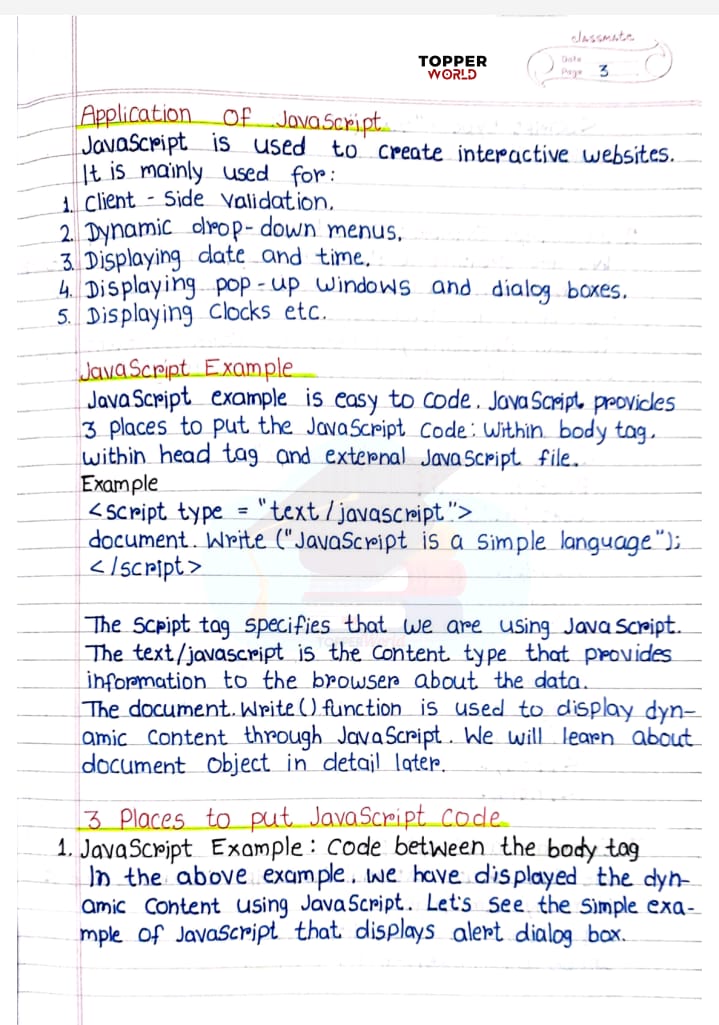 classmate
TOPPER
WORLD
Date
Page 3
Application of JavaScript
JavaScript is used to create interactive websites.
It is mainly used for:
1. Client - Side validation.
2. Dynamic drop-down menus,
3. Displaying date and time.
4. Displaying pop-up windows and dialog boxes.
5. Displaying Clocks etc.
JavaScript Example
JavaScript example is easy to code. JavaScript provides
3 places to put the JavaScript Code: Within body tag,
within head tag and external JavaScript file.
Example
<script type = "text/javascript">
document. Write ("JavaScript is a Simple language");
</script>
The Script tag specifies that we are using JavaScript.
The text/javascript is the Content type that provides
information to the browser about the data.
The document. Write () function is used to display dyn-
amic Content through JavaScript. We will learn about
document Object in detail later.
3 Places to put JavaScript Code
1. JavaScript Example: Code between the body tag
In the above example, we have displayed the dyn-
amic Content using JavaScript. Let's see the simple exa-
mple of JavaScript that displays alert dialog box.